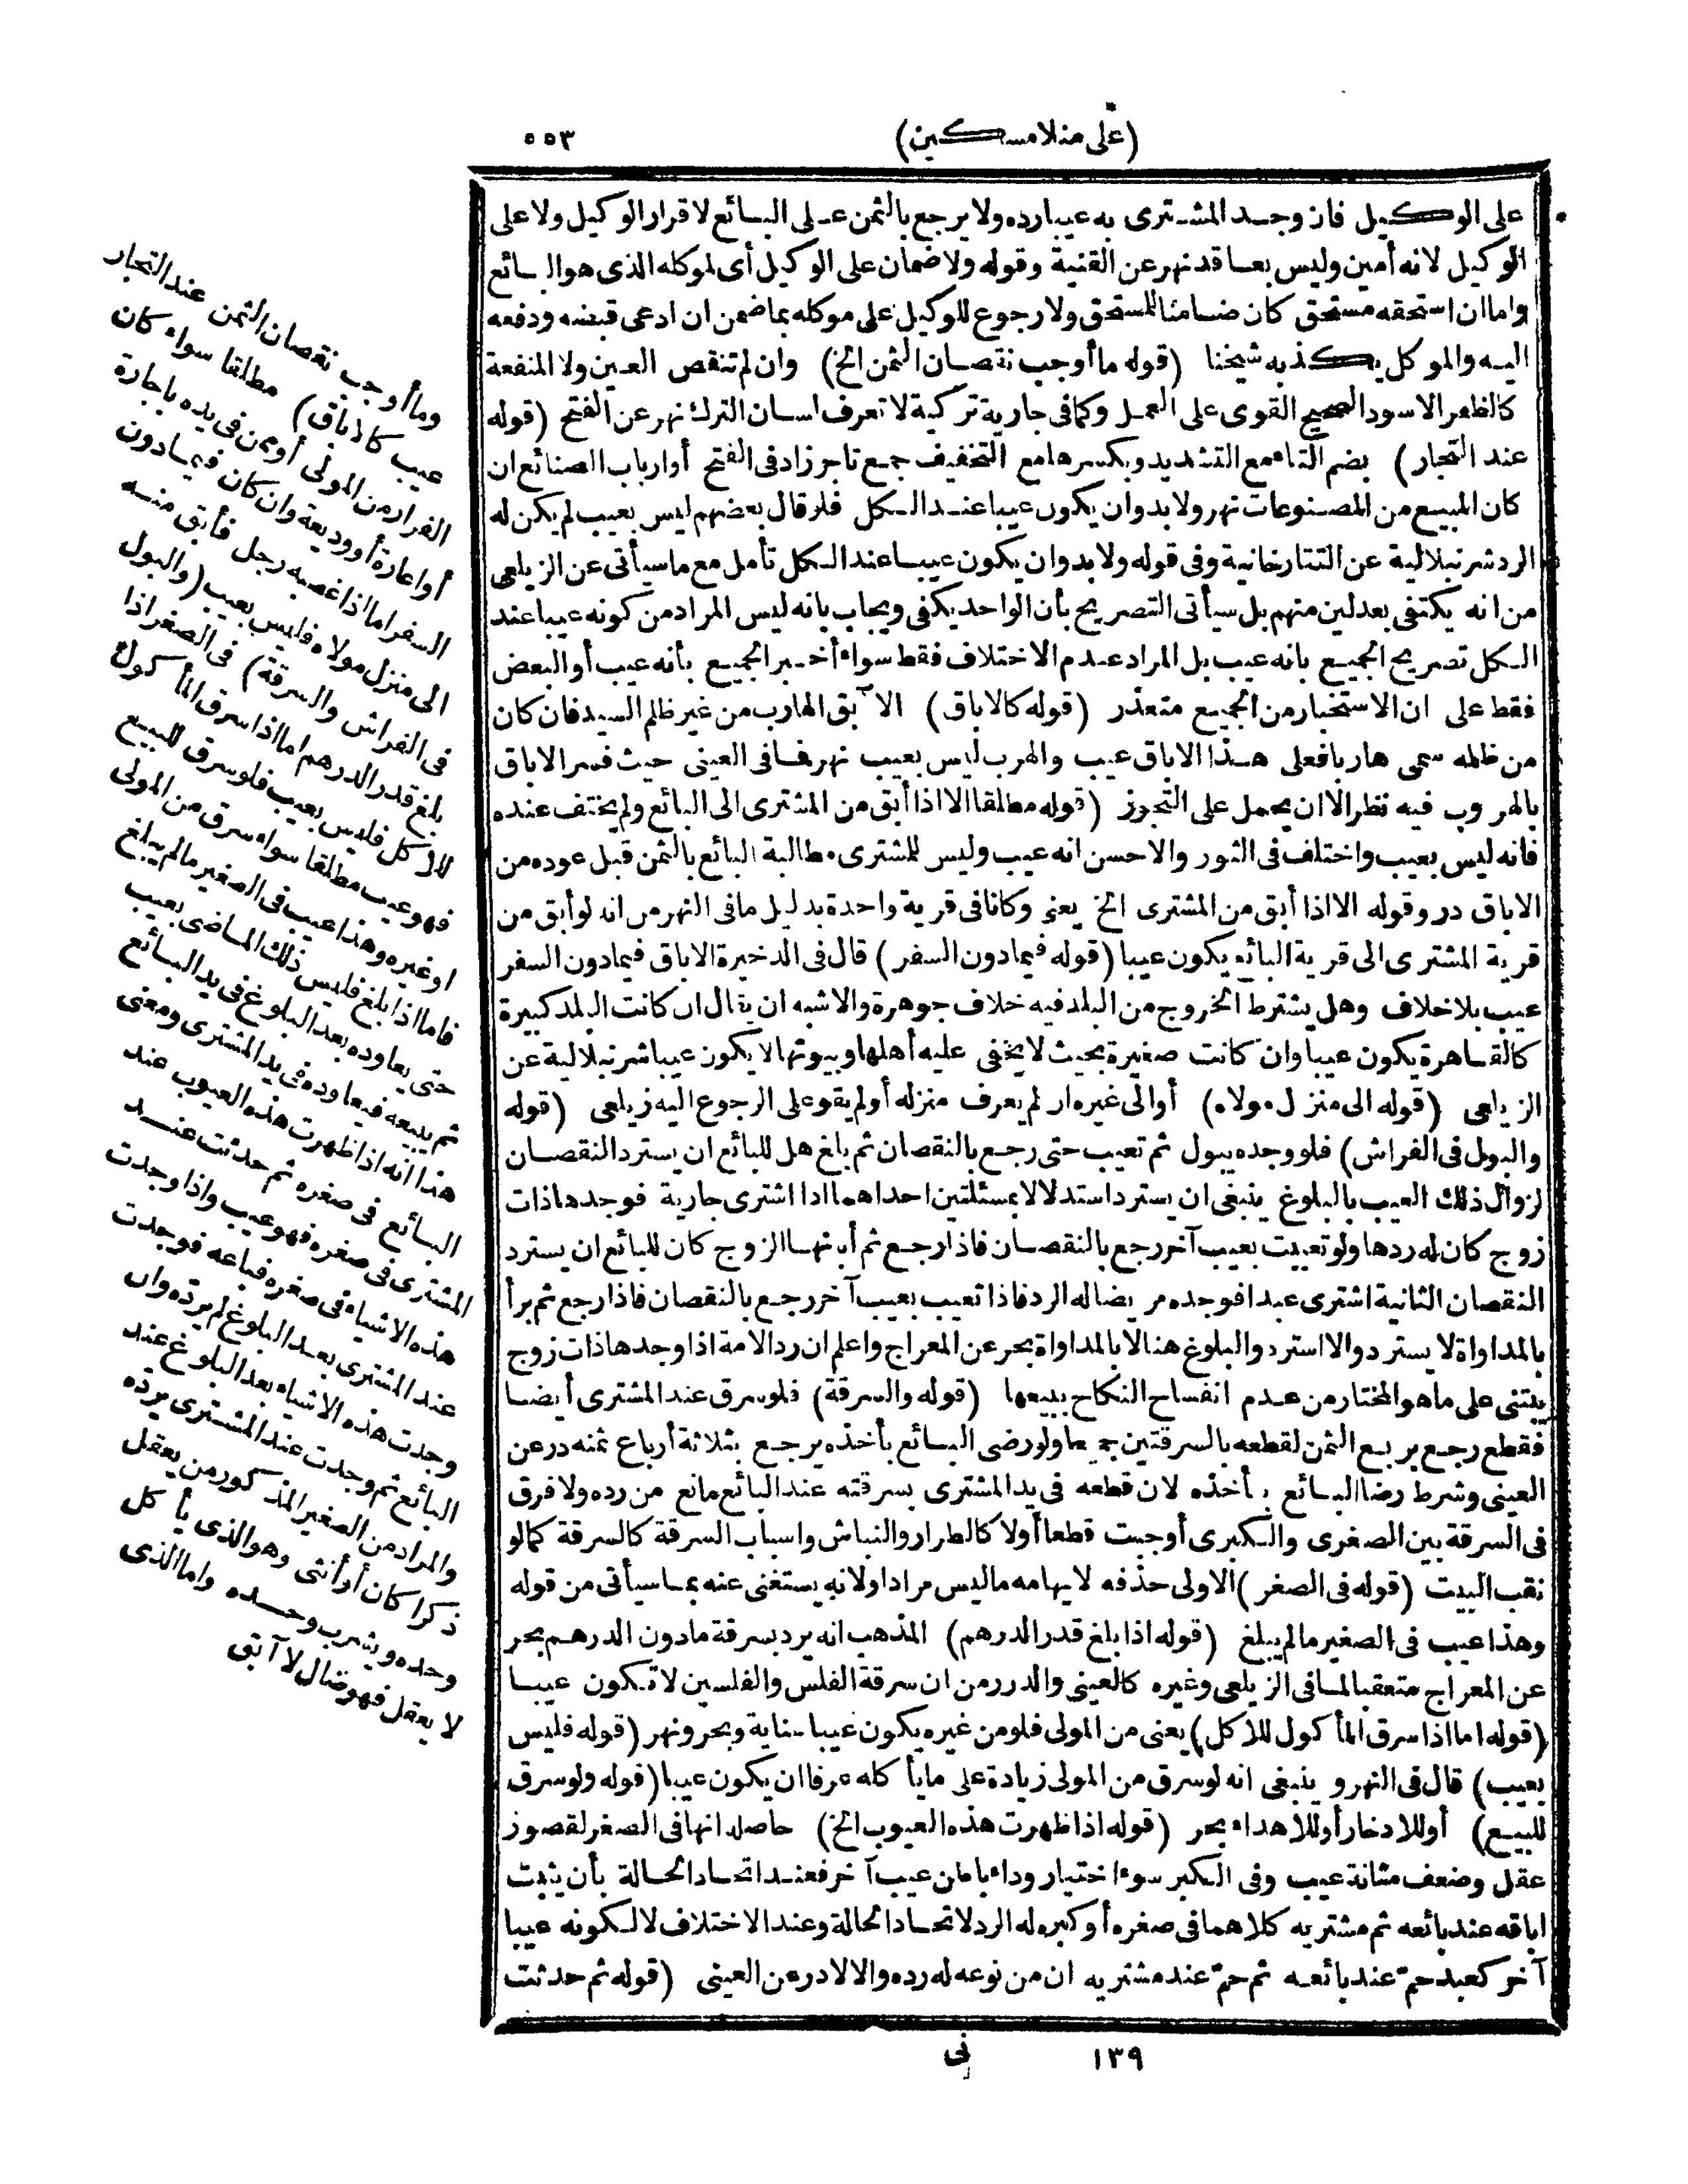 (على منلا مسكين)
٥٥٣
على الوكيل فان وجد المشترى به عيبا رده ولا يرجع بالثمن على البائع لاقرار الوكيل ولا على
الوكيل لانه أمين وليس بعاقد نهر عن القنية وقوله ولا ضمان على الوكيل أى لموكله الذى هو البائع
واما ان استحقه مستحق كان ضامنا للمستحق ولا رجوع للوكيل على موكله بما ضمن ان ادعى قبضه ودفعه
اليه والموكل يكذبه شيخنا (قوله ما أوجب نقصان الثمن الخ) وان لم تنقص العين ولا المنفعة
كالظفر الاسود الصحيح القوى على العمل وكما فى جارية تركية لا تعرف لسان الترك نهر عن الفتح (قوله
عند التجار) بضم التاء مع التشديد وبكسرها مع التخفيف جمع تاجر زاد فى الفتح أو ارباب الصنائع ان
كان المبيع من المصنوعات نهر ولا بد وان يكون عيبا عند الكل فلو قال بعضهم ليس بعيب لم يكن له
الرد شرنبلالية عن التتارخانية وفى قوله ولا بد وان يكون عيبا عند الكل تأمل مع ما سيأتى عن الزيلعى
من انه يكتفى بعدلين منهم بل سيأتى التصريح بأن الواحد يكفى ويجاب بانه ليس المراد من كونه عيبا عند
الكل تصريح الجميع بانه عيب بل المراد عدم الاختلاف فقط سواء أخبر الجميع بأنه عيب أو البعض
فقط على ان الاستخبار من الجميع متعذر (قوله كالاباق) الآبق الهارب من غير ظلم السيد فان كان
من ظلمه سمى هاربا فعلى هذا الاباق عيب والهرب ليس بعيب نهر فما فى العينى حيث فسر الاباق
بالهروب فيه نظر الا ان يحمل على التجوز (قوله مطلقا الا اذا أبق من المشترى الى البائع ولم يختف عنده
فانه ليس بعيب واختلف فى الثور والاحسن انه عيب وليس للمشترى مطالبة البائع بالثمن قبل عوده من
الاباق در وقوله الا اذا أبق من المشترى الخ يعنى وكانا فى قرية واحدة بدليل ما فى النهر من انه لو أبق من
قرية المشترى الى قرية البائع يكون عيبا (قوله فيما دون السفر) قال فى الذخيرة الاباق فيما دون السفر
عيب بلا خلاف وهل يشترط الخروج من البلد فيه خلاف جوهرة والاشبه ان يقال ان كانت البلد كبيرة
كالقاهرة يكون عيبا وان كانت صغيرة بحيث لا يخفى عليه أهلها وبيوتها لا يكون عيبا شرنبلالية عن
الزيلعى (قوله الى منزل مولاه) أو الى غيره ان لم يعرف منزله أو لم يقو على الرجوع اليه زيلعى (قوله
والبول فى الفراش) فلو وجده يبول ثم تعيب حتى رجع بالنقصان ثم بلغ هل للبائع ان يسترد النقصان
لزوال ذلك العيب بالبلوغ ينبغى ان يسترد استدلالا بمسئلتين احداهما اذا اشترى جارية فوجدها ذات
زوج كان له ردها ولو تعيبت بعيب آخر رجع بالنقصان فاذا رجع ثم أبانها الزوج كان للبائع ان يسترد
النقصان الثانية اشترى عبدا فوجده مريضا له الرد فاذا تعيب بعيب آخر رجع بالنقصان فاذا رجع ثم برأ
بالمداواة لا يسترد والا استرد والبلوغ هنا لا بالمداواة بحر عن المعراج واعلم ان رد الامة اذا وجدها ذات زوج
يبتنى على ما هو المختار من عدم انفساخ النكاح ببيعها (قوله والسرقة) فلو سرق عند المشترى أيضا
فقطع رجع بربع الثمن لقطعه بالسرقتين جميعا ولو رضى البائع بأخذه يرجع بثلاثة أرباع ثمنه در عن
العينى وشرط رضا البائع بأخذه لان قطعه فى يد المشترى بسرقته عند البائع مانع من رده ولا فرق
فى السرقة بين الصغرى والكبرى أوجبت قطعا أو لا كالطرار والنباش واسباب السرقة كالسرقة كما لو
نقب البيت (قوله فى الصغر) الاولى حذفه لايهامه ما ليس مرادا ولانه يستغنى عنه بما سيأتى من قوله
وهذا عيب فى الصغير ما لم يبلغ (قوله اذا بلغ قدر الدرهم) المذهب انه يرد بسرقة ما دون الدرهم بحر
عن المعراج متعقبا لما فى الزيلعى وغيره كالعينى والدرر من ان سرقة الفلس والفلسين لا تكون عيبا
(قوله اما اذا سرق المأكول للاكل) يعنى من المولى فلو من غيره يكون عيبا عناية وبحر ونهر (قوله فليس
بعيب) قال فى النهر وينبغى انه لو سرق من المولى زيادة على ما يأكله عرفا ان يكون عيبا (قوله ولو سرق
للبيع) أو للادخار أو للاهداء بحر (قوله اذا ظهرت هذه العيوب الخ) حاصله انها فى الصغر لقصور
عقل وضعف مثانة عيب وفى الكبر سوء اختيار وداء باطن عيب آخر فعند اتحاد الحالة بأن يثبت
اباقه عند بائعه ثم مشتريه كلاهما فى صغره أو كبره له الرد لاتحاد الحالة وعند الاختلاف لا لكونه عيبا
آخر كعبد حمّ عند بائعه ثم حمّ عند مشتريه ان من نوعه له رده والا لا در عن العينى (قوله ثم حدثت
وما أوجب نقصان الثمن عند التجار
عيب كالاباق) مطلقا سواء كان
الفرار من المولى أو ممن فى يده باجارة
أو اعارة أو وديعة وان كان فيما دون
السفر اما اذا غصبه رجل فأبق منه
الى منزل مولاه فليس بعيب (والبول
فى الفراش والسرقة) فى الصغر اذا
بلغ قدر الدرهم اما اذا سرق المأكول
للاكل فليس بعيب فلو سرق للبيع
فهو عيب مطلقا سواء سرق من المولى
او غيره وهذا عيب فى الصغير ما لم يبلغ
فاما اذا بلغ فليس ذلك الماضى بعيب
حتى يعاوده بعد البلوغ فى يد البائع
ثم يبيعه فيعاوده فى يد المشترى ومعنى
هذا انه اذا ظهرت هذه العيوب عند
البائع فى صغره ثم حدثت عند
المشترى فى صغره فهو عيب واذا وجدت
هذه الاشياء فى صغره فباعه فوجدت
عند المشترى بعد البلوغ لم يردّه وان
وجدت هذه الاشياء بعد البلوغ عند
البائع ثم وجدت عند المشترى يردّه
والمراد من الصغير المذكور من يعقل
ذكرا كان أو أنثى وهو الذى يأكل
وحده ويشرب وحده واما الذى
لا يعقل فهو ضال لا آبق
١٣٩
نى